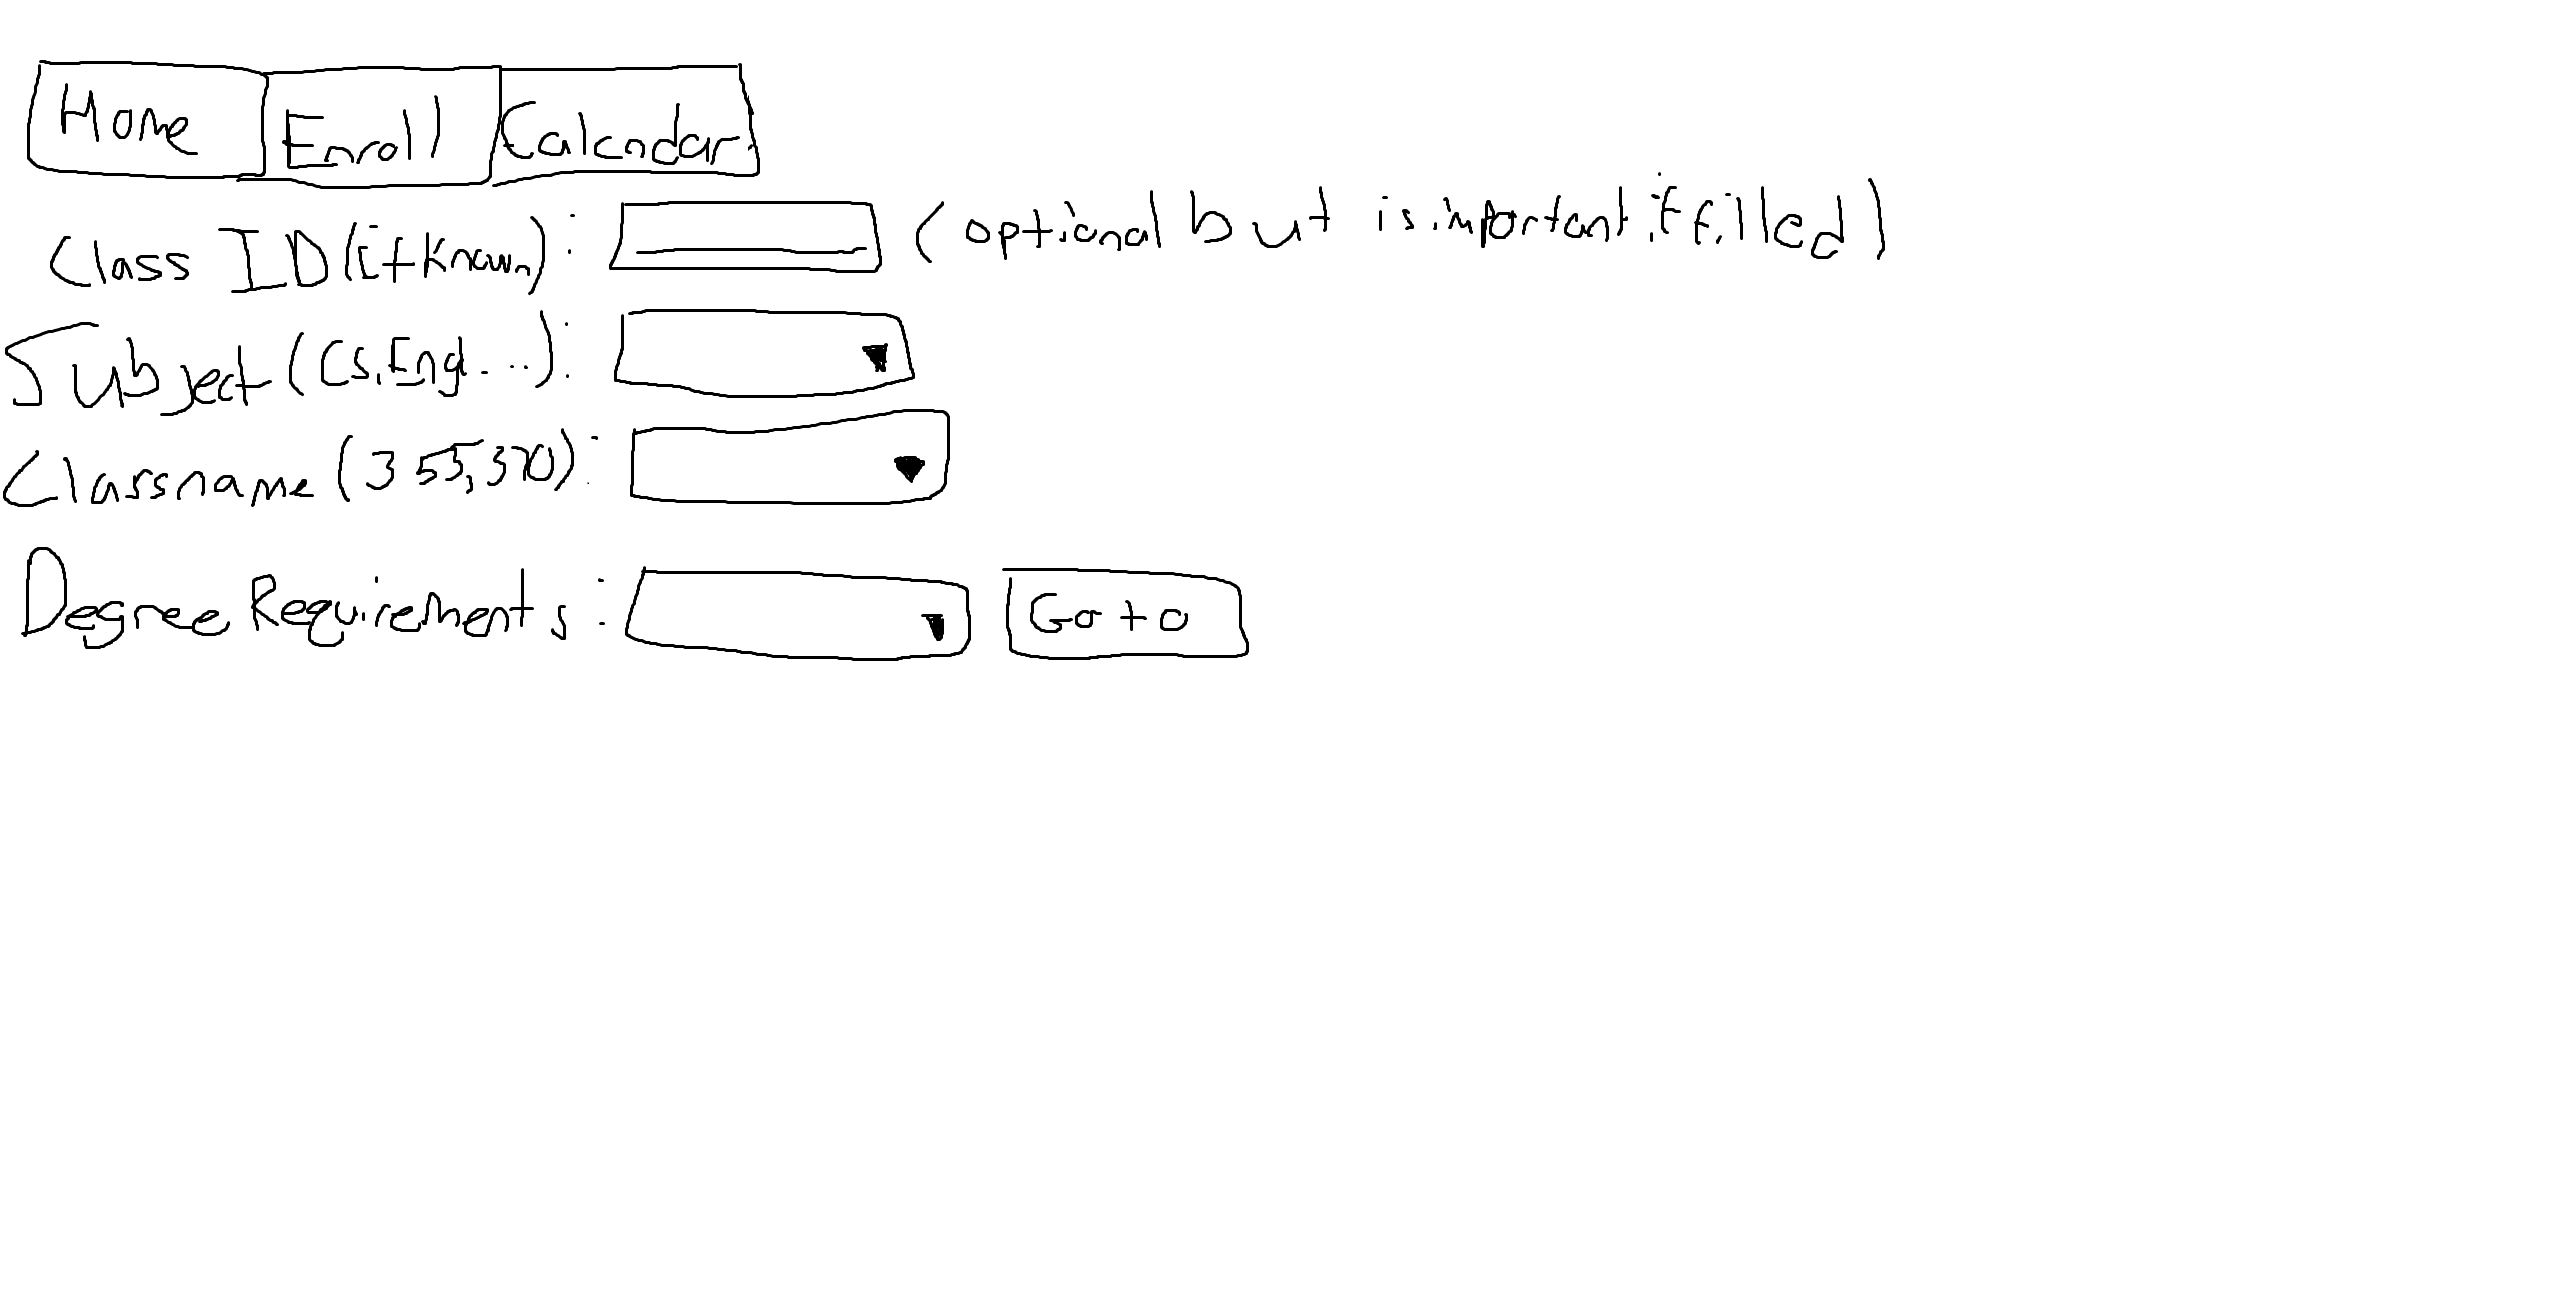 Home Enroll Calendar
Class ID (if known): (optional but is important if filled)
Subject (CS, Engl ...):
Classname (355, 370):
Degree Requirements: Goto